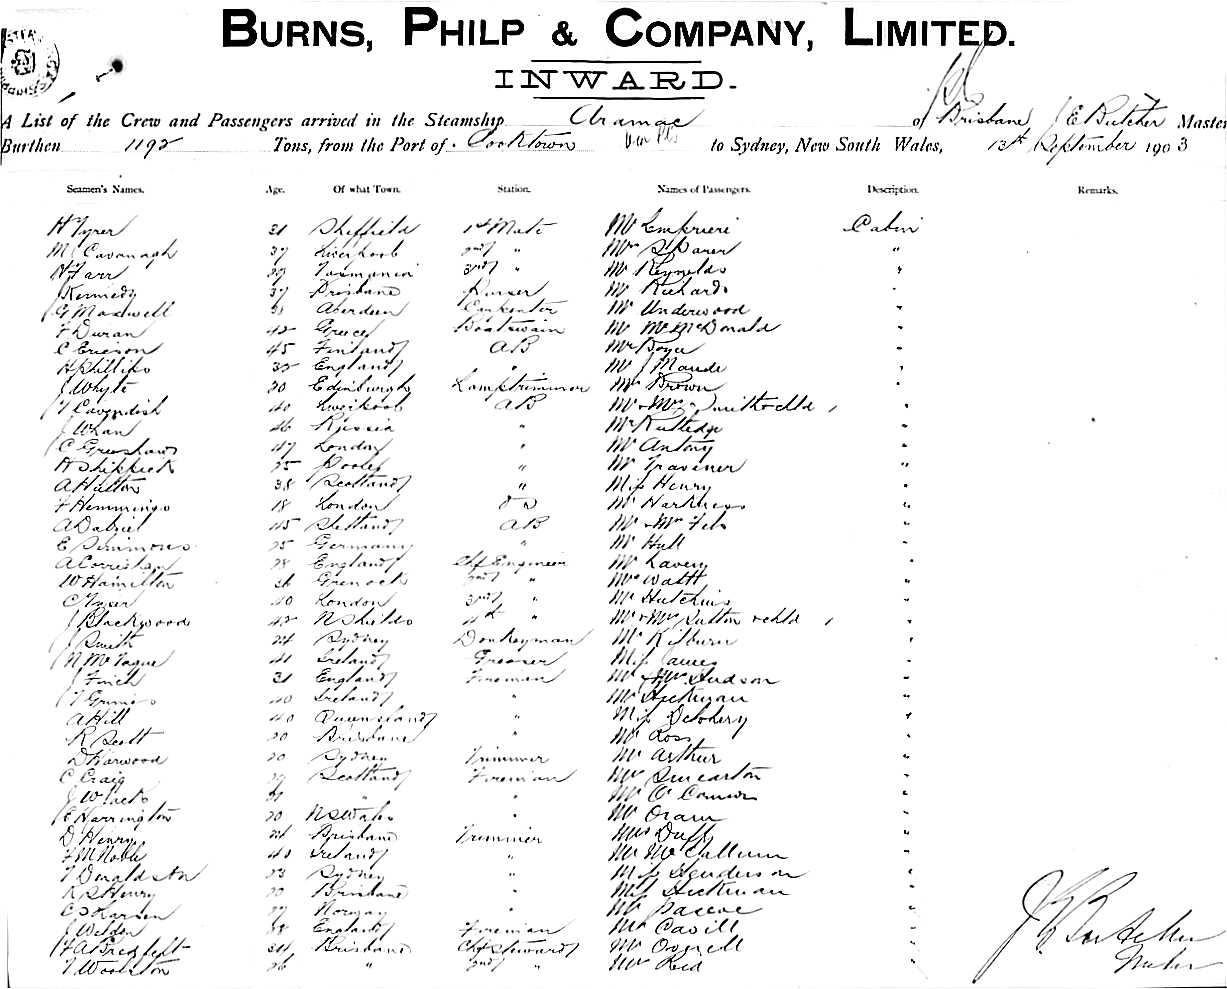 BURNS, PHILP & COMPANY, LIMITED.
INWARD.
A List of the Crew and Passengers arrived in the Steamship Aramac of Brisbane J E Butcher Master
Burthen 1192 Tons, from the Port of Cooktown to Sydney, New South Wales, 13th September 1903
Seamen's Names. Age. Of what Town. Station. Names of Passengers. Description. Remarks.
H Tyrer 31 Sheffield 1st Mate Mr Cabin
M Cavanagh 37 Liverpool 2nd " Mrs "
H Farr 29 Tasmania 3rd " Mr Reynolds "
Kennedy 37 Brisbane Purser Mr Richards "
G Maxwell Aberdeen Carpenter Mr Underwood "
F Duran 42 Greece Boatswain Mr McDonald "
C Ericson 45 Finland AB Boyce "
H Phillips 32 England " Mr J Maude "
J Whyte 20 Edinburgh Lamptrimmer Brown "
T Cavendish 40 Liverpool AB Mr & Mrs Smith & chld "
J Whan 46 Russia " Mr Rutledge "
C Greeshaw 47 London " Mr Antony "
H 25 Poole " Mr Travener "
A Hutton 38 Scotland " Miss Henry "
F Hemmings 18 London OS Mr Harkness "
A Dalziel 45 Shetland AB Mr & Mrs "
E Simmons 25 Germany " Mr Hull "
A Corrighan 28 England Chf Engineer Mr Lavery "
W Hamilton 36 Grenock 2nd " Watt "
C 40 London 3rd " Mr Hutchins "
J Blackwood 42 N Shields 4th " Mr & Mrs Sutton & chld "
J Smith 24 Sydney Donkeyman Mr Kilburn "
N McTague 41 Ireland Greaser Miss James "
J Finch 31 England Fireman Mr & Mrs Hudson "
T 40 Ireland " Mr Hickman "
A Hill 40 Queensland " Miss Delohery "
R Scott 20 Brisbane " Mr Ross "
D Harwood 20 Sydney Trimmer Mr Arthur "
C Craig 29 Scotland Fireman Mr "
J W " " Mr O'Connor "
E Harrington 20 NSWales " Mr Oram "
D Henry 24 Brisbane Trimmer Duff "
F M Noble 40 Ireland " Mr McCallum "
T Donaldson 23 Sydney " Miss Henderson "
R S Henry 20 Brisbane " Miss Hickman "
C Larsen 29 Norway " Mr Pascoe "
J Weldon 38 England Fireman Mr Cavill "
F A Bred 34 Brisbane Chf Steward Mr "
T Woolston 26 " 2nd " Mr Reid "
J E Butcher
Master